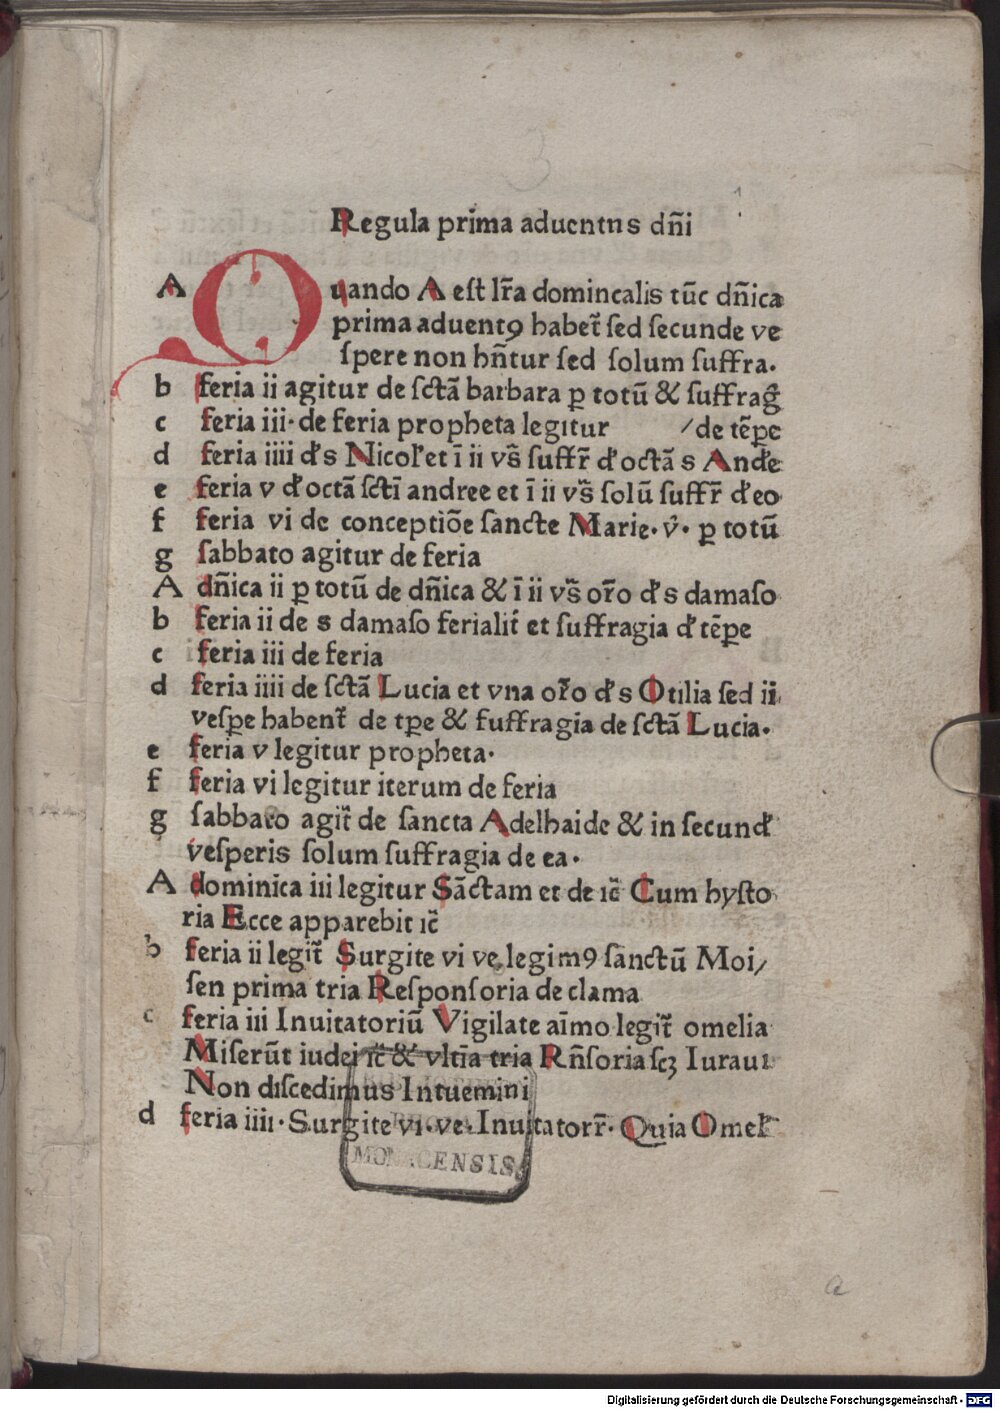 3
1
Regula prima aduentns dn̄i
A Quando A est lr̄a domincalis tūc dn̄ica
prima aduentꝯ habet̄ sed secunde ve
spere non hn̄tur sed solum suffra.
b feria ii agitur de sctā barbara ꝑ totū & suffrag̃
c feria iii· de feria propheta legitur /de tēꝑe
d feria iiii d's Nicol'et ī ii vs̄ suffr̄ d'octā s And'e
e feria v d'octā sctī andree et ī ii vs̄ solū suffr̄ d'eo
f feria vi de conceptiōe sancte Marie· v̊· ꝑ totū
g sabbato agitur de feria
A dn̄ica ii ꝑ totū de dn̄ica & ī ii vs̄ or̄o d's damaso
b feria ii de s damaso ferialit̄ et suffragia d'tēꝑe
c feria iii de feria
d feria iiii de sctā Lucia et vna or̄o d's Otilia sed ii
vesꝑe habent̄ de tꝑe & fuffragia de sctā Lucia·
e feria v legitur propheta·
f feria vi legitur iterum de feria
g sabbato agit̄ de sancta Adelhaide & in secund'
vesperis solum suffragia de ea·
A dominica iii legitur Sāctam et de ic̄ Cum hysto
ria Ecce apparebit ic̄
b feria ii legit̄ Surgite vi ve legimꝯ sanctū Moi/
sen prima tria Responsoria de clama
c feria iii Inuitatoriū Vigilate aīmo legit̄ omelia
Miserūt iudei ic̄ & vltīa tria Rn̄soria scꝫ Iuraui
Non discedimus Intuemini
d feria iiii· Surgite vi· ve· Inuitatorr̄· Quia Omel'
MONACENSIS.
a
Digitalisierung gefördert durch die Deutsche Forschungsgemeinschaft - DFG